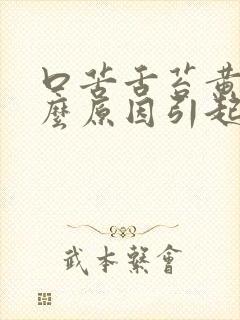 口苦舌苔黄
麼原因引起
武本繫會